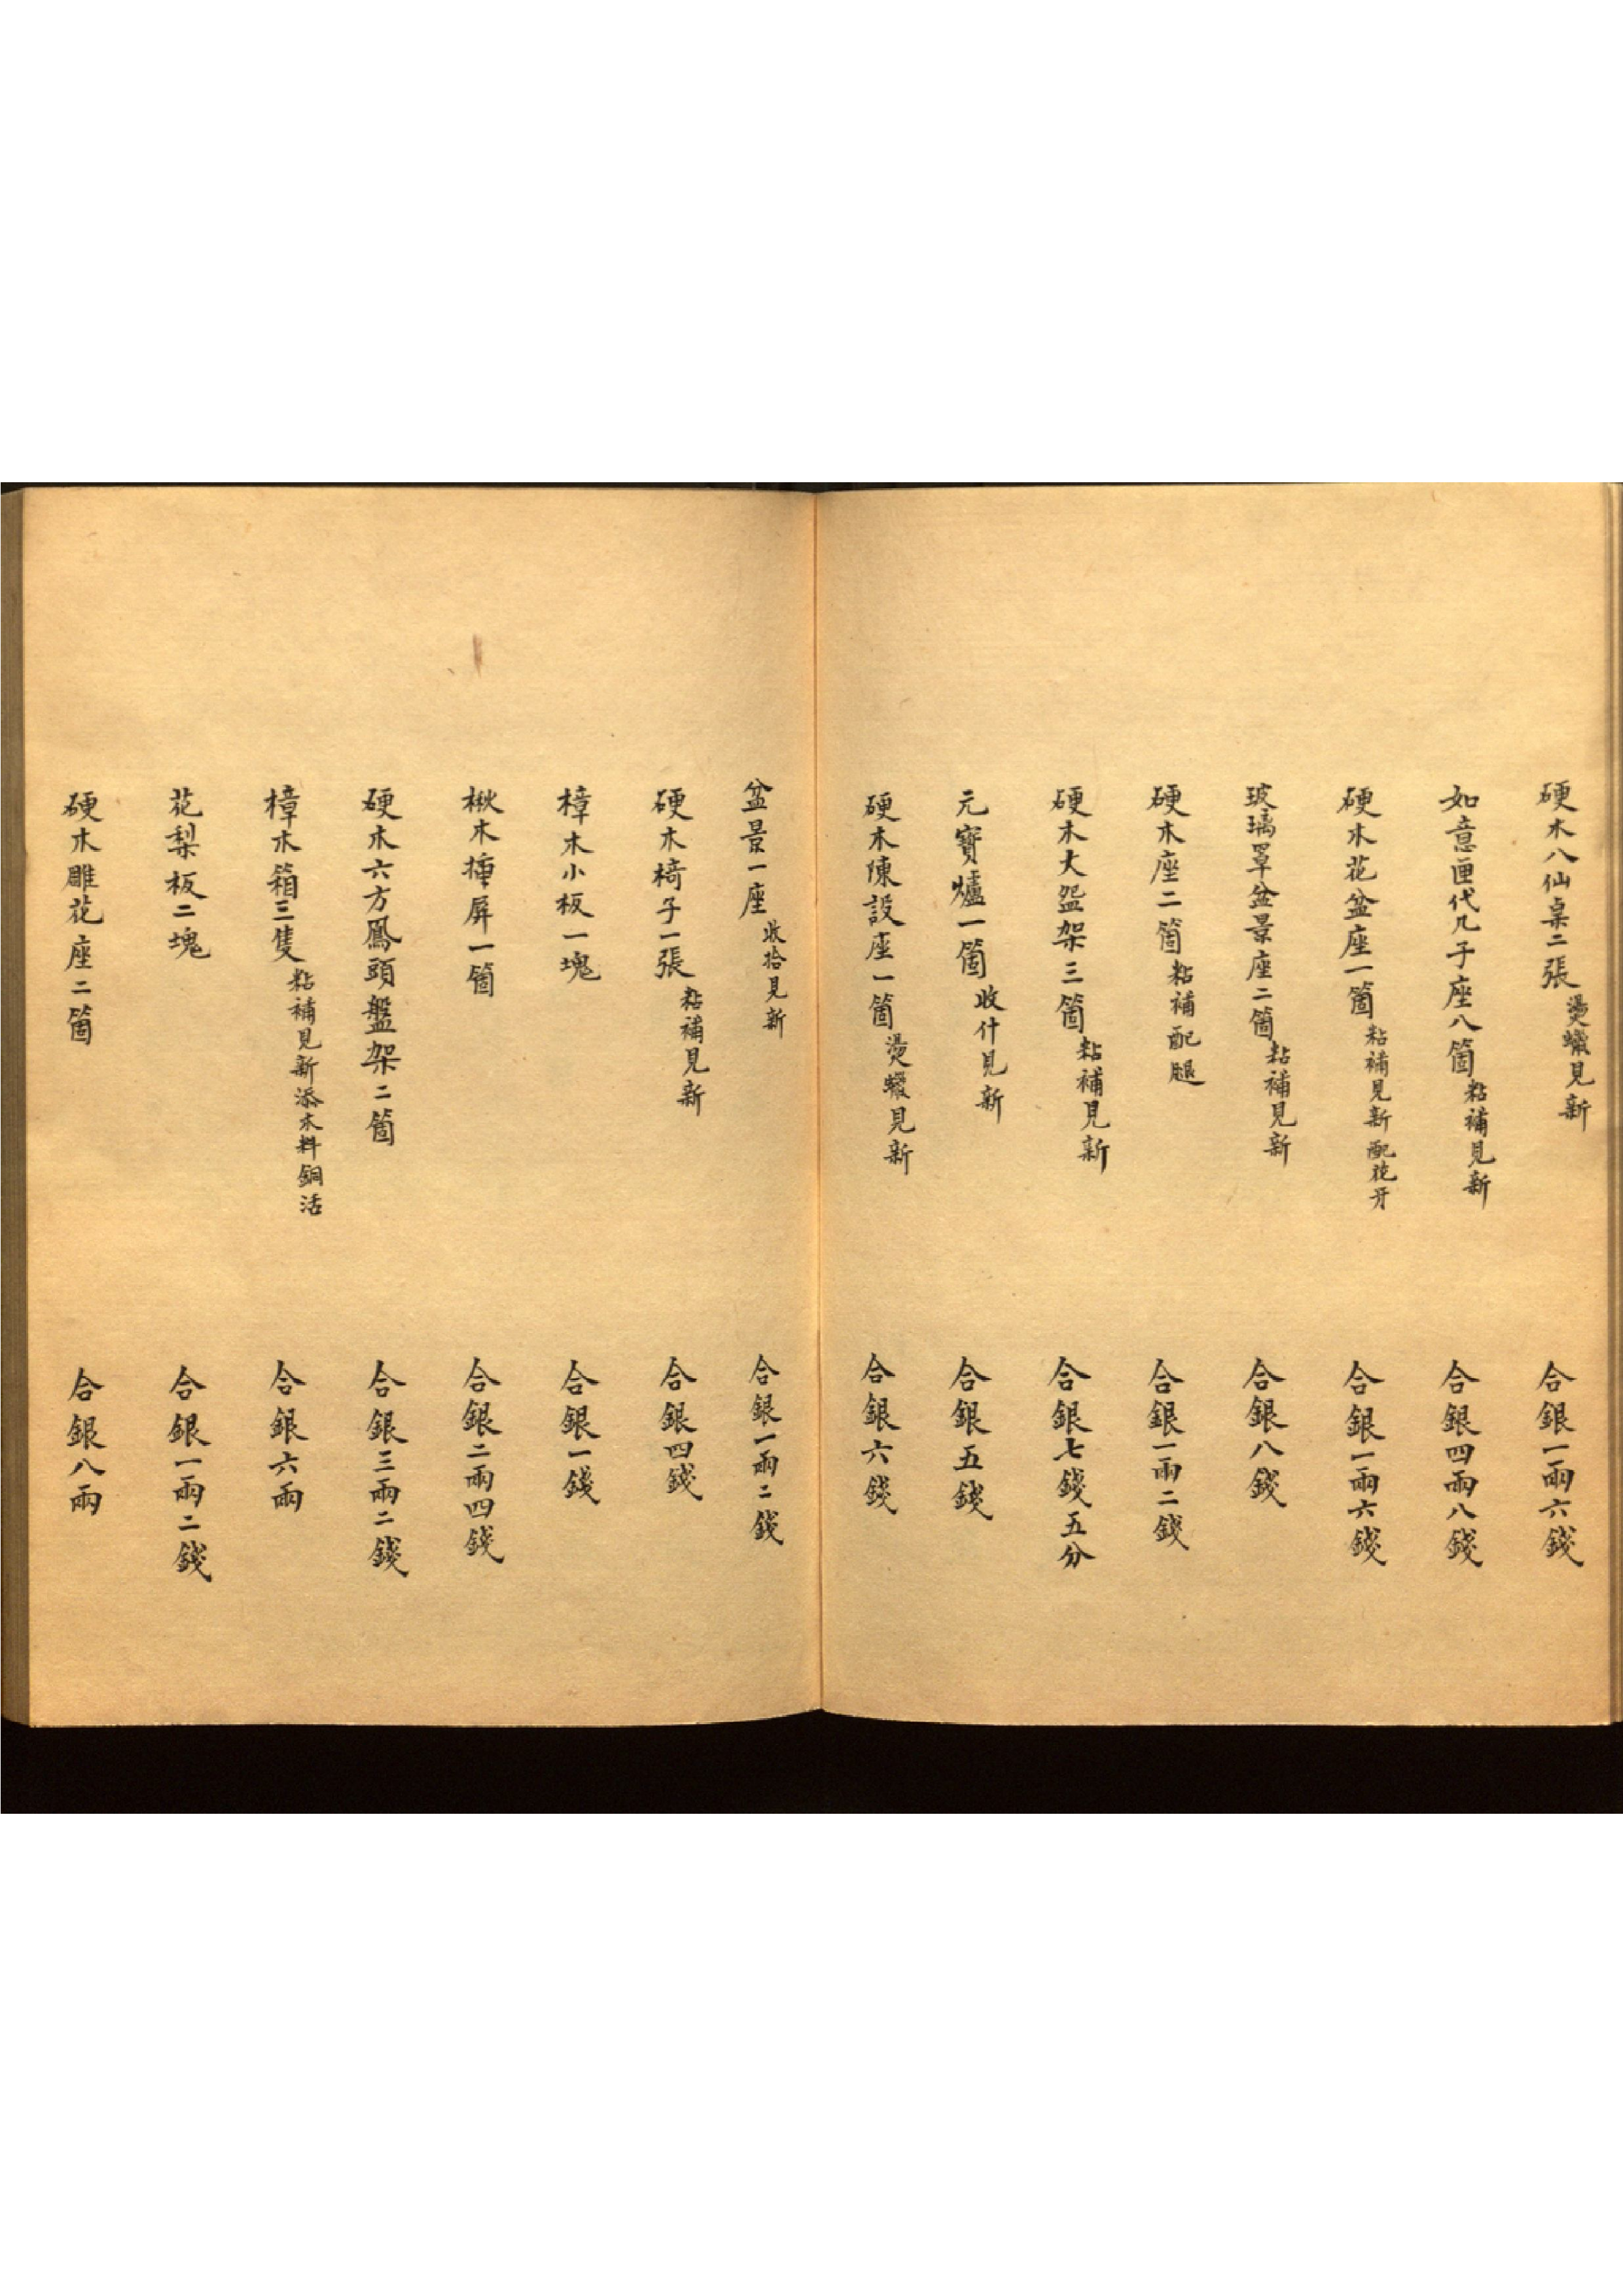 硬木八仙桌二張燙蠟見新 合銀一兩六錢
如意匣代几子座八箇粘補見新 合銀四兩八錢
硬木花盆座一箇粘補見新配花牙 合銀一兩六錢
玻璃罩盆景座二箇粘補見新 合銀八錢
硬木座二箇粘補配腿 合銀一兩二錢
硬木大盌架三箇粘補見新 合銀七錢五分
元寶爐一箇收什見新 合銀五錢
硬木陳設座一箇燙蠟見新 合銀六錢
盆景一座收拾見新 合銀一兩二錢
硬木椅子一張粘補見新 合銀四錢
樟木小板一塊 合銀一錢
楸木插屏一箇 合銀二兩四錢
硬木六方鳳頭盤架二箇 合銀三兩二錢
樟木箱三隻粘補見新添木料銅活 合銀六兩
花梨板二塊 合銀一兩二錢
硬木雕花座二箇 合銀八兩